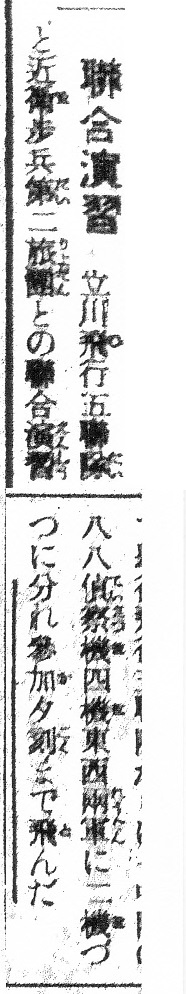 聯合演習 立川飛行五聯隊
と近衛歩兵第二旅團との聯合演習
八八偵察機四機東西兩軍に二機づ
つに分れ參加夕刻まで飛んだ